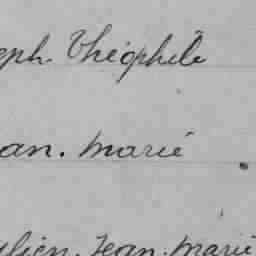 eph. Théophile
an. Marie
lien. Jean. Marie